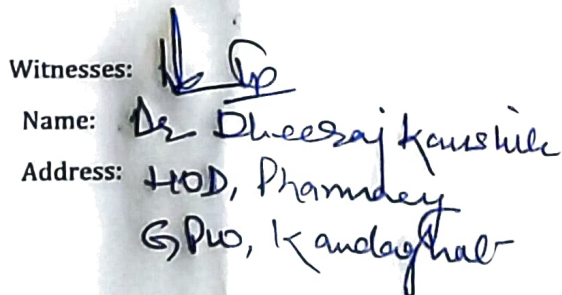 Witnesses:
Name: Dr Dheeraj Kaushik
Address: HOD, Pharmacy
GPW, Kandaghat